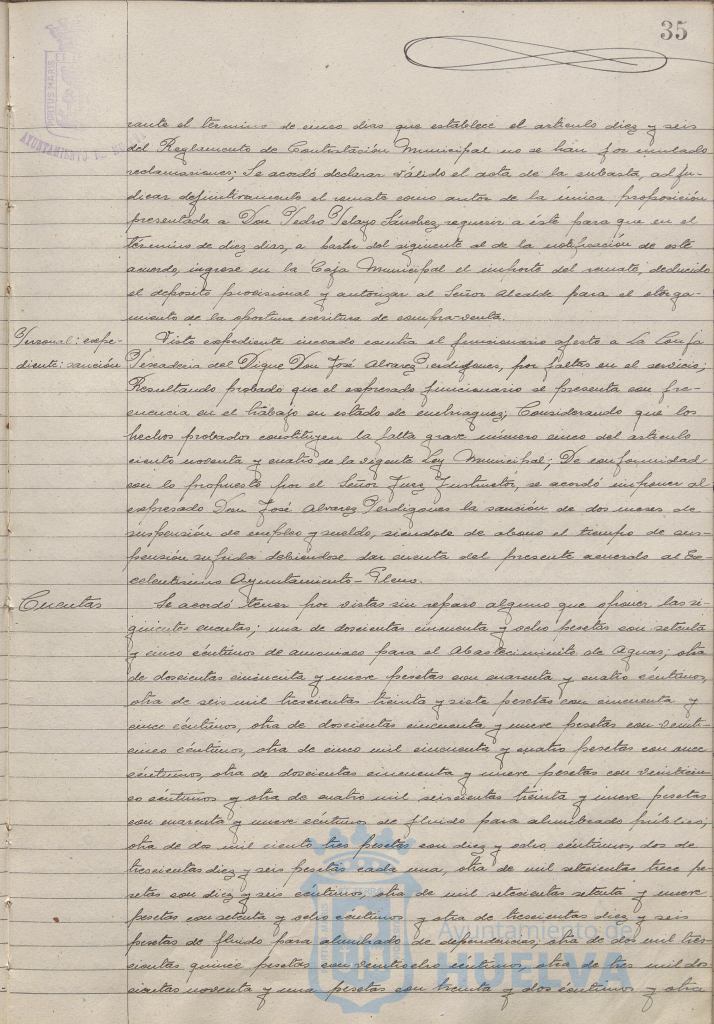 35
PORTUS MARIS
AYUNTAMIENTO DE
rante el término de cinco dias que establece el articulo diez y seis
del Reglamento de Contratación Municipal no se han formulado
reclamaciones; Se acordó declarar válido el acta de la subasta, adju-
dicar definitivamente el remate como autor de la única proposición
presentada a Don Pedro Pelayo Sánchez requerir a éste para que en el
término de diez dias, a partir del siguiente al de la notificación de este
acuerdo, ingrese en la Caja Municipal el importe del remate, deducido
el deposito provisional y autorizar al Señor Alcalde para el otorga-
miento de la oportuna escritura de compra-venta.
Personal: expe-
diente: sanción
Visto expediente incoado contra el funcionario afecto a La Lonja
Pescaderia del Dique Don José Alvarez Perdigones, por faltas en el servicio;
Resultando probado que el expresado funcionario se presenta con fre-
cuencia en el trabajo en estado de embriaguez; Considerando que los
hechos probados constituyen la falta grave número cinco del articulo
ciento noventa y cuatro de la vigente Ley Municipal; De conformidad
con lo propuesto por el Señor Juez Instructor, se acordó imponer al
expresado Don José Alvarez Perdigones la sanción de dos meses de
suspensión de empleo y sueldo, siendole de abono el tiempo de sus-
pensión sufrida debiendose dar cuenta del presente acuerdo al Ex-
celentisimo Ayuntamiento-Pleno.
Cuentas
Se acordó tener por vistas sin reparo alguno que oponer las si-
guientes cuentas; una de doscientas cincuenta y ocho pesetas con setenta
y cinco céntimos de amoniaco para el Abastecimiento de Aguas; otra
de doscientas cincuenta y nueve pesetas con cuarenta y cuatro céntimos,
otra de seis mil trescientas treinta y siete pesetas con cincuenta y
cinco céntimos, otra de doscientas cincuenta y nueve pesetas con veinti-
cinco céntimos, otra de cinco mil cincuenta y cuatro pesetas con once
céntimos, otra de doscientas cincuenta y nueve pesetas con veinticin-
co céntimos y otra de cuatro mil seiscientas treinta y nueve pesetas
con cuarenta y nueve céntimos de fluido para alumbrado público;
otra de dos mil ciento tres pesetas con diez y ocho céntimos, dos de
trescientas diez y seis pesetas cada una, otra de mil setecientas trece pe-
setas con diez y seis céntimos, otra de mil setecientas setenta y nueve
pesetas con setenta y ocho céntimos y otra de trescientas diez y seis
pesetas de fluido para alumbrado de dependencias, otra de dos mil tres-
cientas quince pesetas con veintiocho céntimos, otra de tres mil dos
cientas noventa y una pesetas con treinta y dos céntimos y otra
Ayuntamiento de
HUELVA